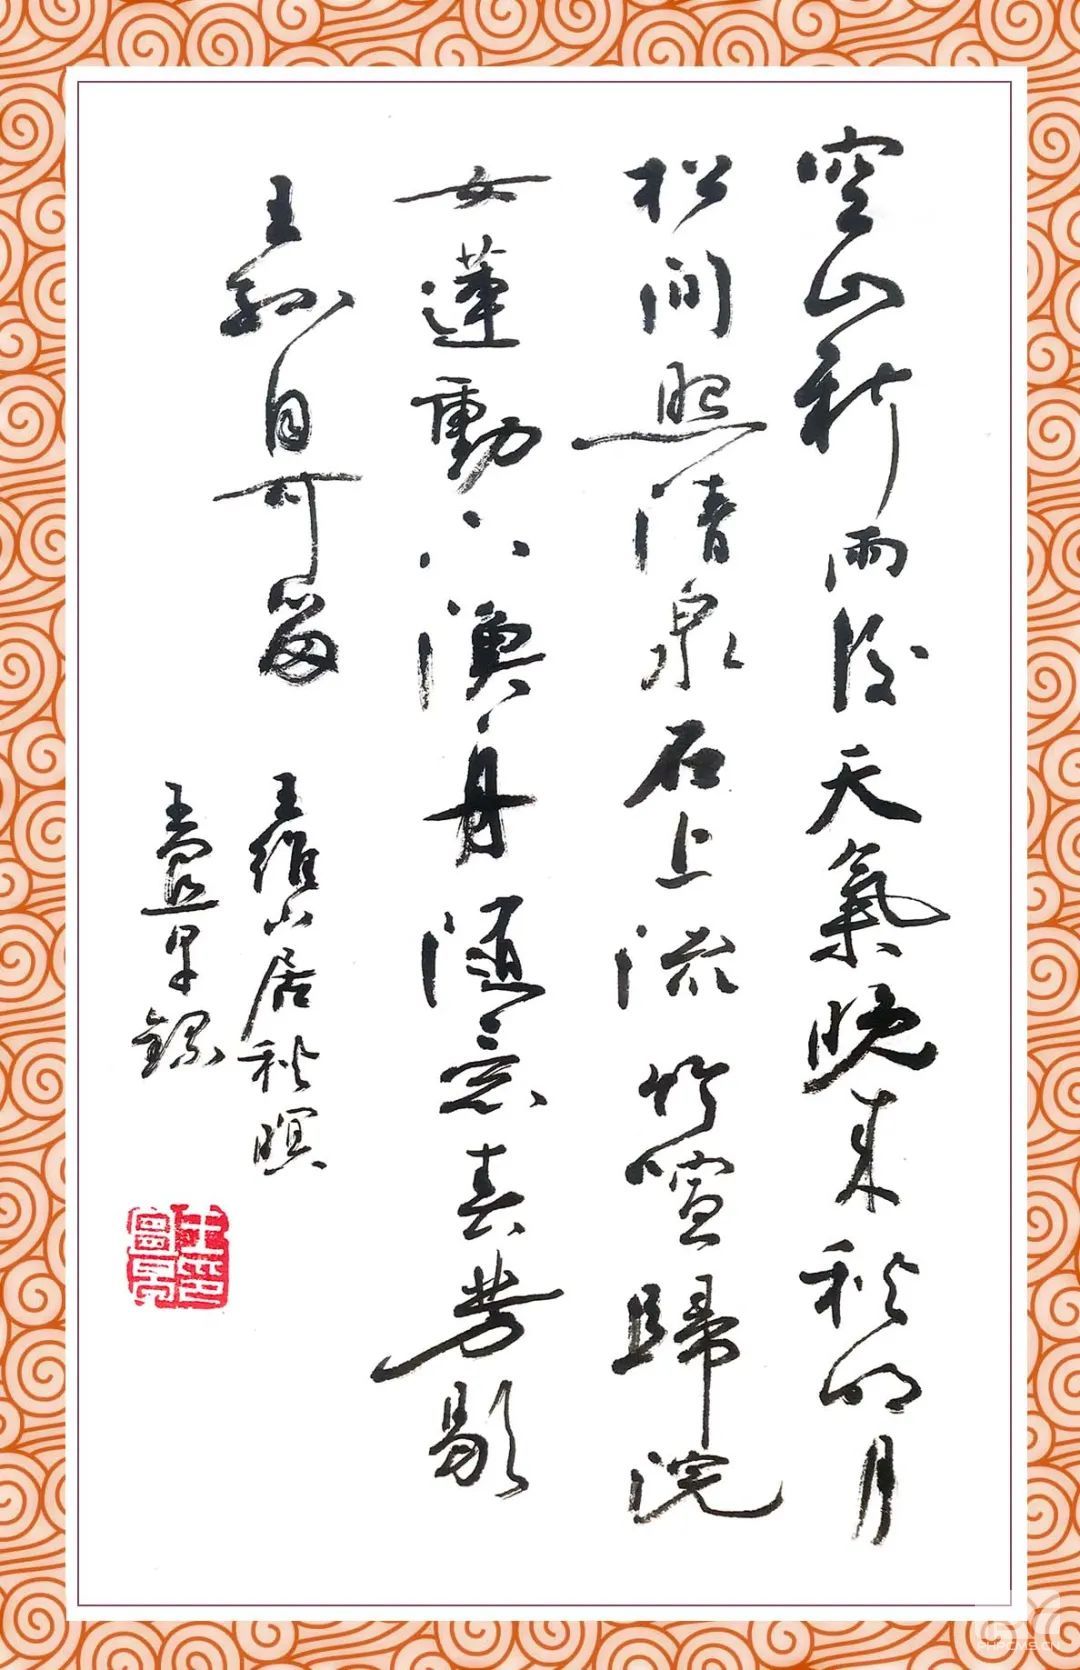 空山新雨後天氣晚来秋明月
松间照清泉石上流竹喧歸浣
女蓮動下漁舟隨意春芳歇
王孫自可留
王維山居秋暝
王